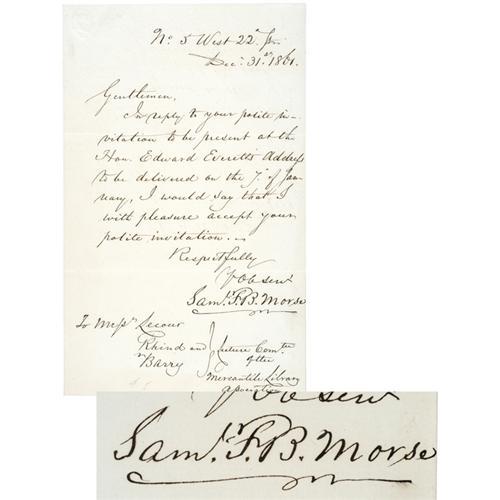 No 5 West 22d St.
Dec. 31st 1861.
Gentlemen,
In reply to your polite in-
vitation to be present at the
Hon. Edward Everett's Address
to be delivered on the 7. of Jan-
uary, I would say that I
with pleasure accept your
polite invitation.
Respectfully
Yr Ob Servt
Saml. F. B. Morse
To Messrs Lecour
Rhind and
Barry
Lecture Comtee
of the
Mercantile Library
Association
Ob Servt
Saml. F. B. Morse